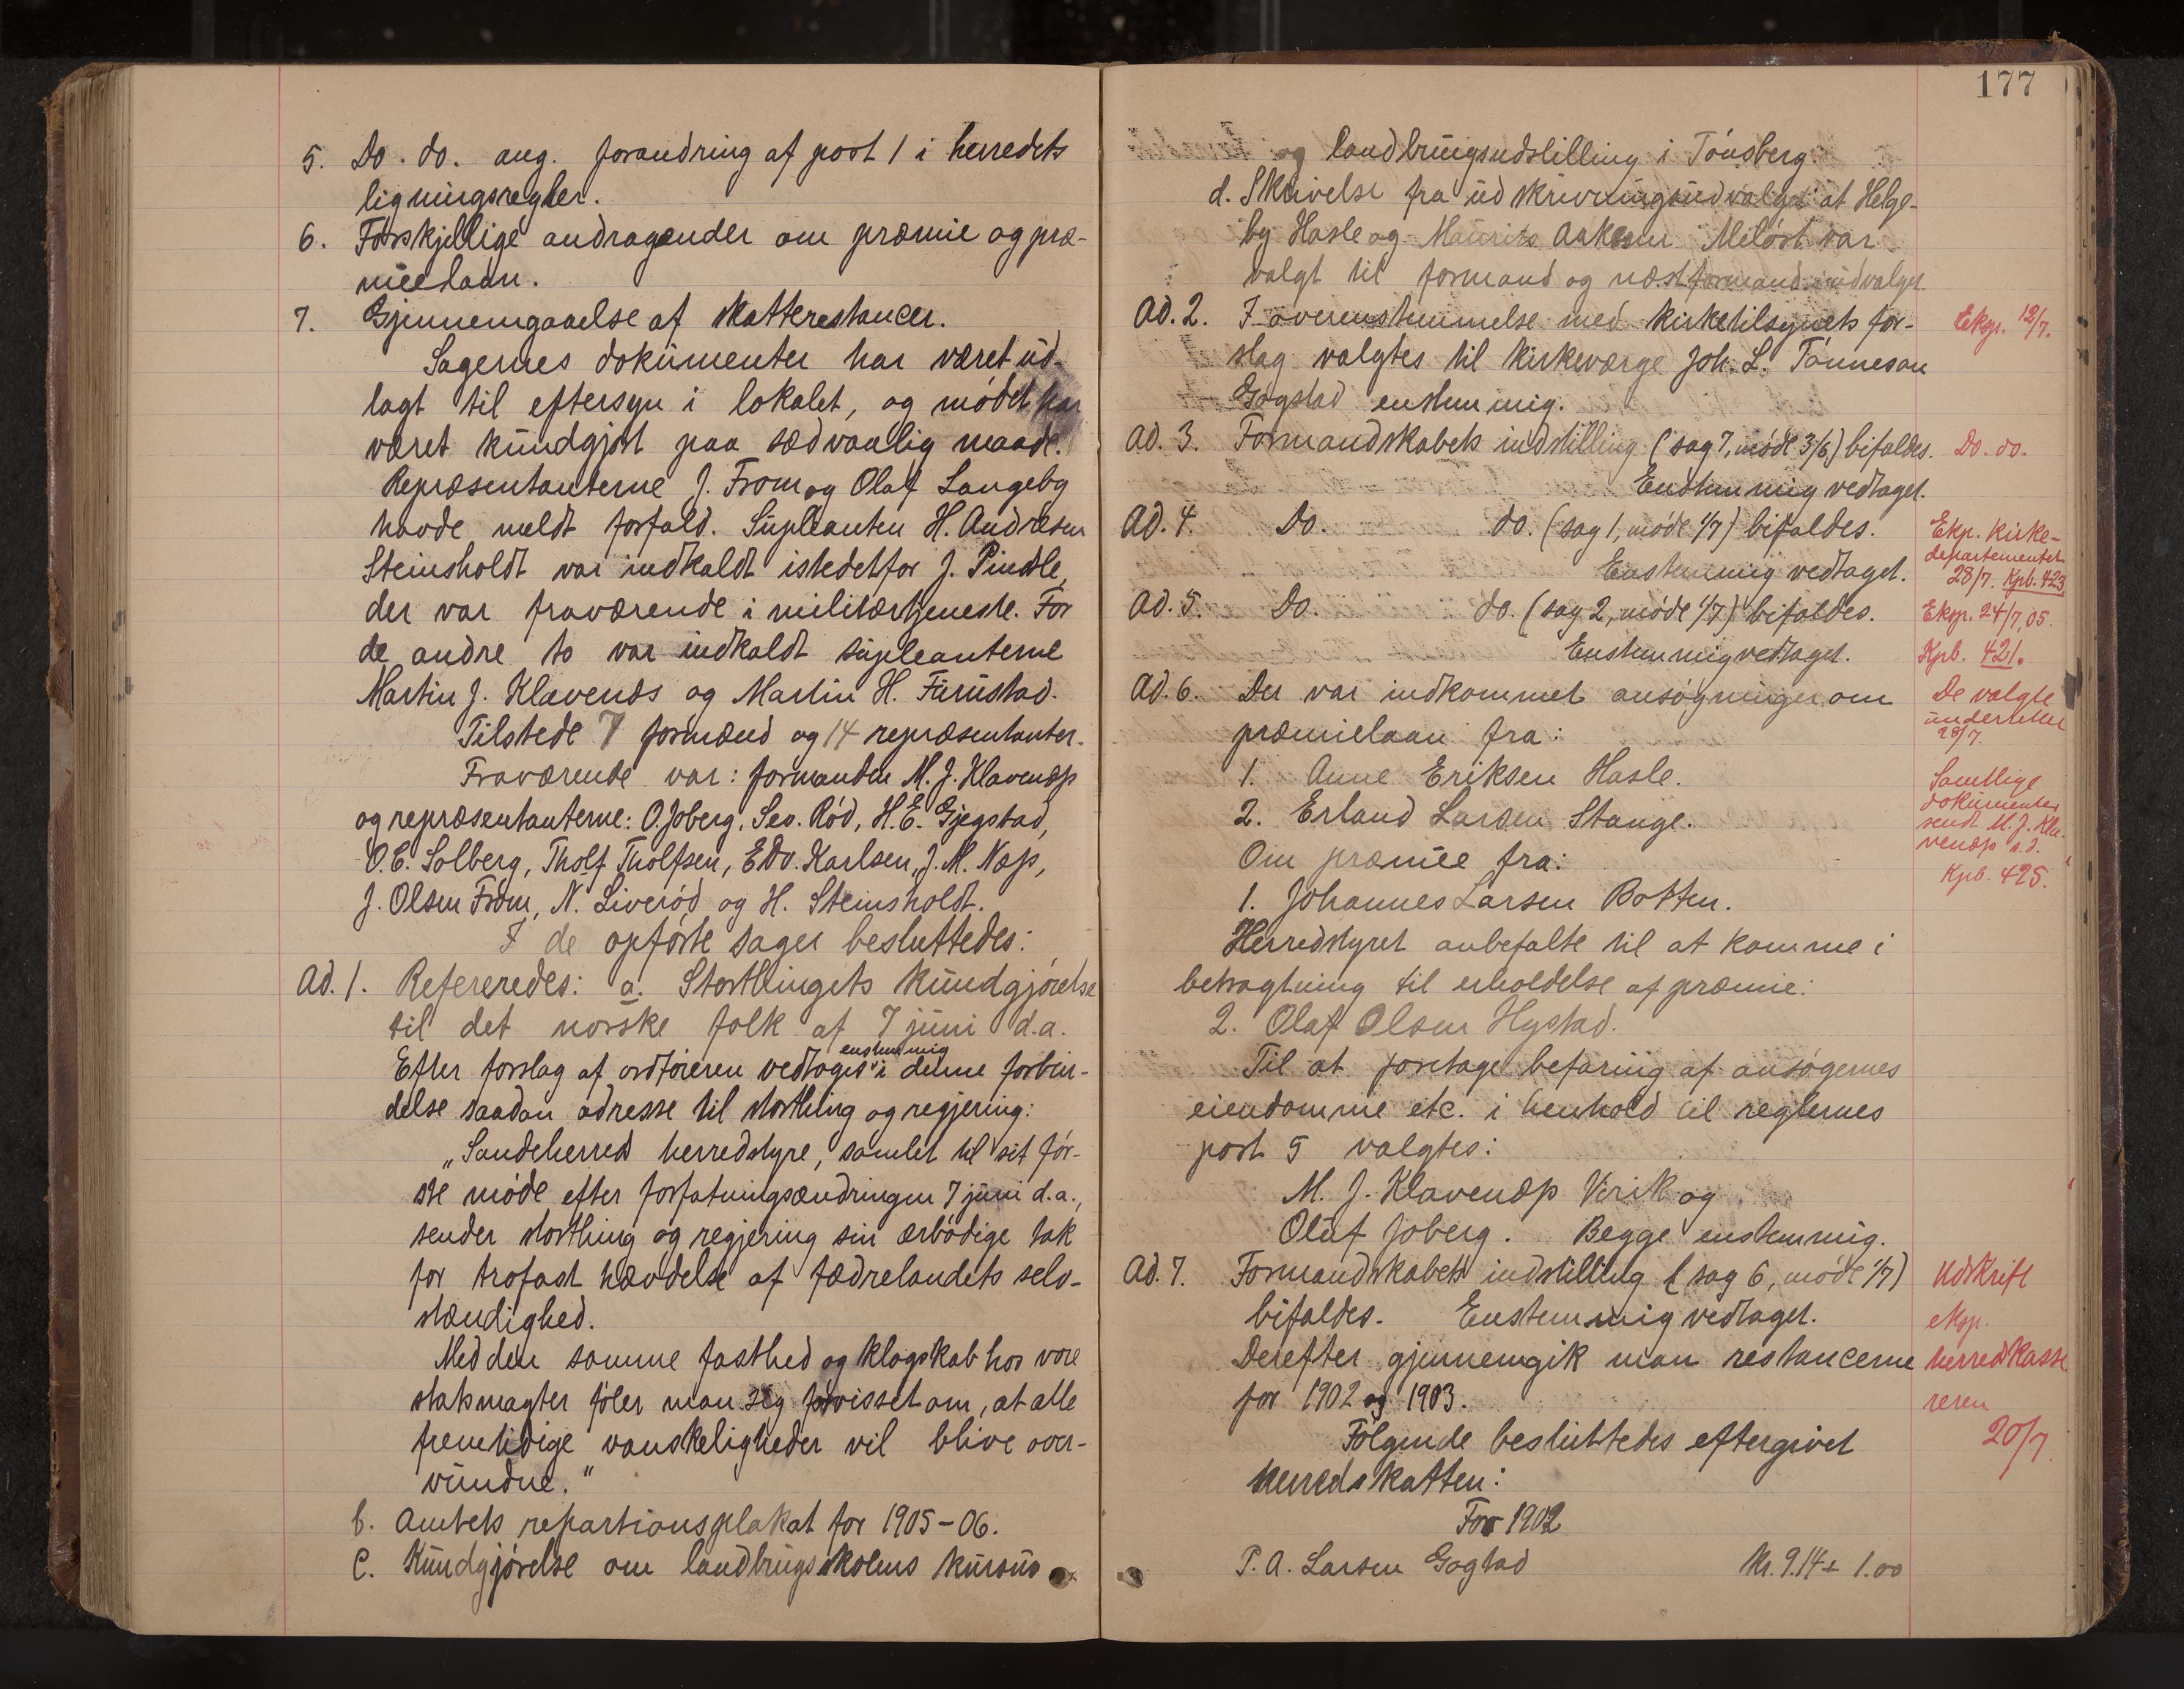 5. Do. do. ang. forandring af post 1 i herredets
ligningsregler.
6. Forskjellige andragender om præmie og præ-
mielaan.
7. Gjennemgaaelse af skatterestancer.
Sagernes dokumenter har været ud-
lagt til eftersyn i lokalet, og mødet har
været kundgjort paa sædvanlig maade.
Repræsentanterne J. From og Olaf Langeby
havde meldt forfald. Supleanten H. Andresen
Steinsholdt var indkaldt istedetfor J. Pindsle,
der var fraværende i militærtjeneste. For
de andre to var indkaldt supleanterne
Martin J. Klavenæs og Martin H. Furustad.
Tilstede 7 formænd og 14 repræsentanter.
Fraværende var: formanden M. J. Klavenæss
og repræsentanterne: O. Joberg, Sev. Rød, H. E. Gjegstad,
O. E. Solberg, Tholf Tholfsen, Edv. Karlsen, J. M. Næss,
J. Olsen From, N. Liverød og H. Steinsholdt.
I de opførte sager besluttedes:
Ad. 1. Refereredes: a. Storthingets kundgjørelse
til det norske folk af 7 juni d.a.
enstemmig
Efter forslag af ordføreren vedtoges i denne forbin-
delse saadan adresse til storthing og regjering:
„Sandeherred herredstyre, samlet til sit før-
ste møde efter forfatningsændringen 7 juni d.a.,
sender storthing og regjering sin ærbødige tak
for trofast hævdelse af fædrelandets selv-
stændighed.
Med den samme fasthed og klogskab hos vore
statsmagter føler man sig forvisset om, at alle
fremtidige vanskeligheder vil blive over-
vundne."
b. Amtets repartionsplakat for 1905-06.
c. Kundgjørelse om landbrugsskolens kursus
177
og landbrugsudstilling i Tønsberg
d. Skrivelse fra udskrivningsudvalget at Helge-
by Hasle og Maurits Aakesen Meløst var
valgt til formand og næstformand i udvalget
Ad. 2. I overenstemmelse med kirketilsynets for-
slag valgtes til kirkeværge Joh. L. Tønneson
Gogstad enstemmig.
Eksp. 12/7.
Ad. 3. Formandskabets indstilling (sag 7, møde 3/6) bifaldes.
Do. do.
Enstemmig vedtaget.
Ad. 4. Do. do. (sag 1, møde 1/7) bifaldes.
Enstemmig vedtaget.
Ekp. kirke-
departementet
28/7. Kpb. 423
Ad. 5. Do. do. (sag 2, møde 1/7) bifaldes.
Enstemmig vedtaget.
Eksp. 24/7, 05.
Kpb. 421.
Ad. 6. Der var indkommet ansøgninger om
præmielaan fra:
1. Anne Eriksen Hasle.
2. Erland Larsen Stange.
Om præmie fra:
1. Johannes Larsen Botten.
Herredstyret anbefalte til at komme i
betragtning til erholdelse af præmie:
2. Olaf Olsen Hystad.
Til at foretage befaring af ansøgernes
eiendomme etc. i henhold til reglernes
post 5 valgtes:
M. J. Klavenæss Virik og
Oluf Joberg. Begge enstemmig.
De valgte
underrettet
28/7.
Samtlige
dokumenter
sendt M. J. Kla-
venæss s.d.
Kpb. 425.
Ad. 7. Formandskabets indstilling (sag 6, møde 1/7)
bifaldes. Enstemmig vedtaget.
Derefter gjennemgik man restancerne
for 1902 og 1903.
Følgende besluttedes eftergivet
herredskatten:
For 1902
P. A. Larsen Gogstad kr. 9.14 + 1.00
Udskrift
eksp.
herredskasse
reren
20/7.